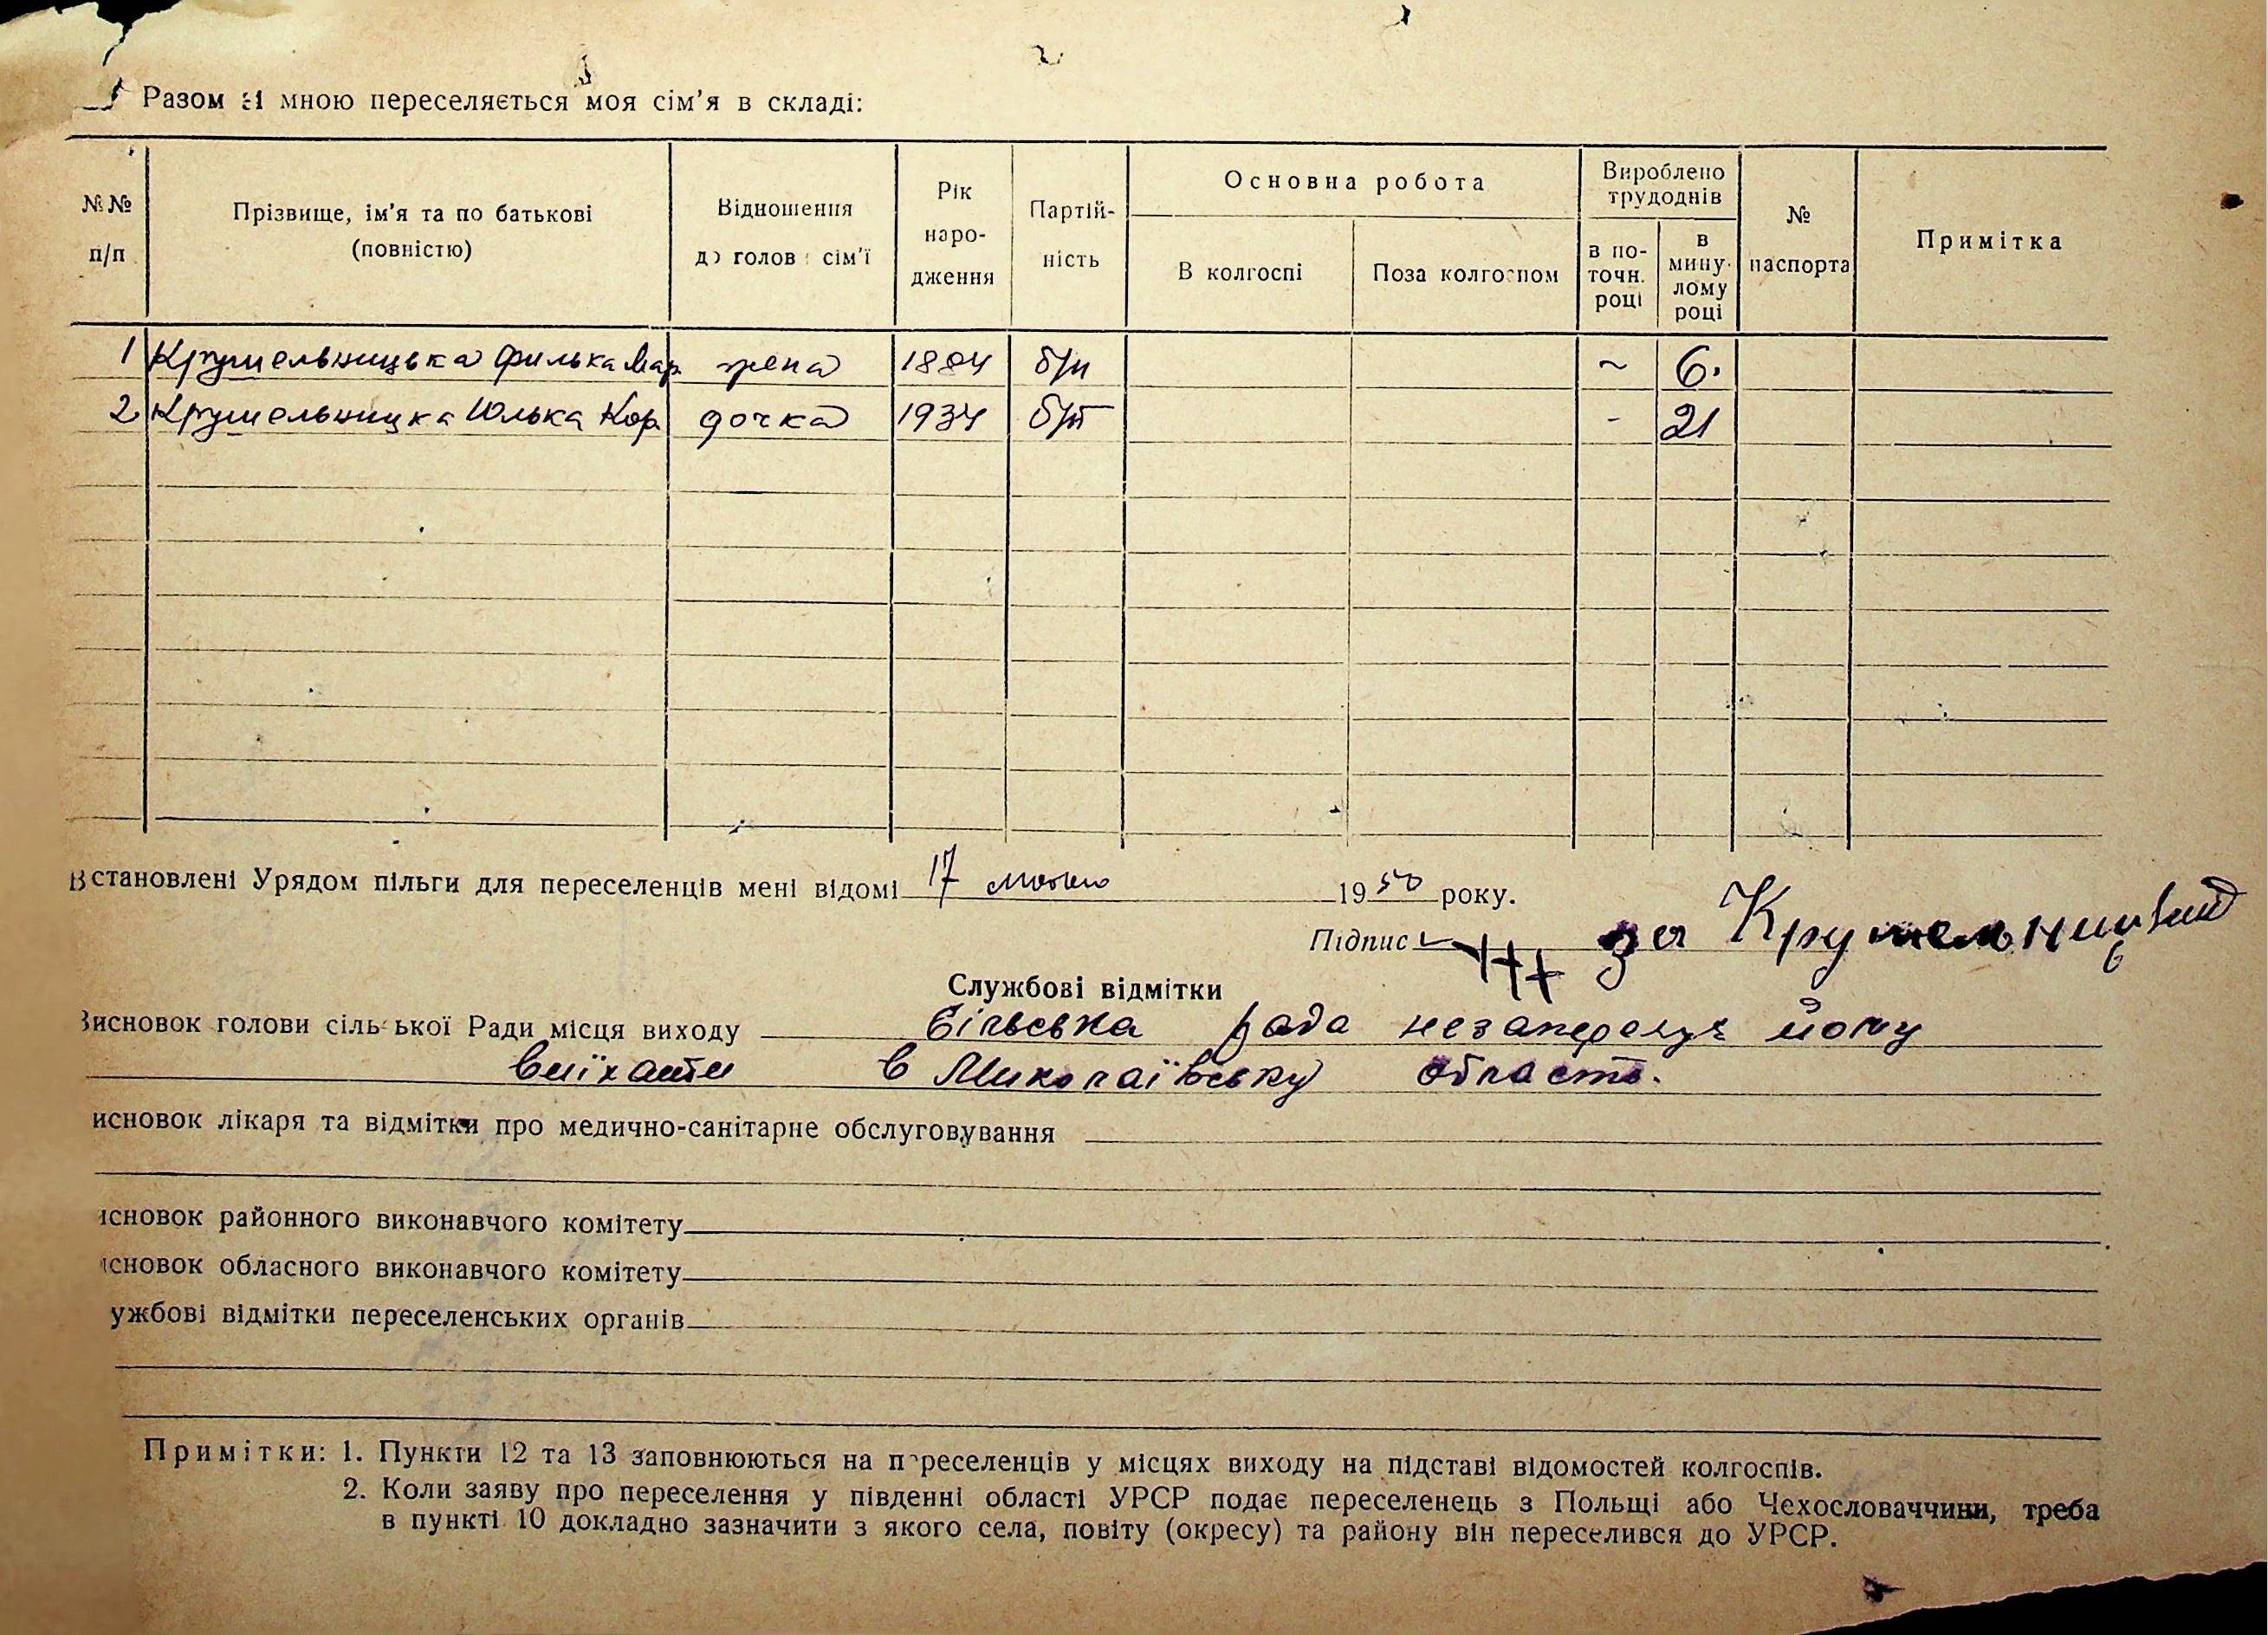 Разом зі мною переселяється моя сім'я в складі:
№№ п/п Прізвище, ім'я та по батькові (повністю) Відношення до голови сім'ї Рік народження Партійність Основна робота Вироблено трудоднів № паспорта Примітка
В колгоспі Поза колгоспом в поточн. році в минулому році
1 Крушельницька Филька Мар. жена 1884 б/п ~ 6.
2 Крушельницка Юлька Кор дочка 1934 б/п - 21
Встановлені Урядом пільги для переселенців мені відомі 17 1950 року.
Підпис +++ за Крушельницький
Службові відмітки
Висновок голови сільської Ради місця виходу Сільська рада незаперечує йому
виїхати в Миколаївську область.
исновок лікаря та відмітки про медично-санітарне обслуговування
исновок районного виконавчого комітету
исновок обласного виконавчого комітету
ужбові відмітки переселенських органів
Примітки: 1. Пункти 12 та 13 заповнюються на переселенців у місцях виходу на підставі відомостей колгоспів.
2. Коли заяву про переселення у південні області УРСР подає переселенець з Польщі або Чехословаччини, треба
в пункті 10 докладно зазначити з якого села, повіту (окресу) та району він переселився до УРСР.